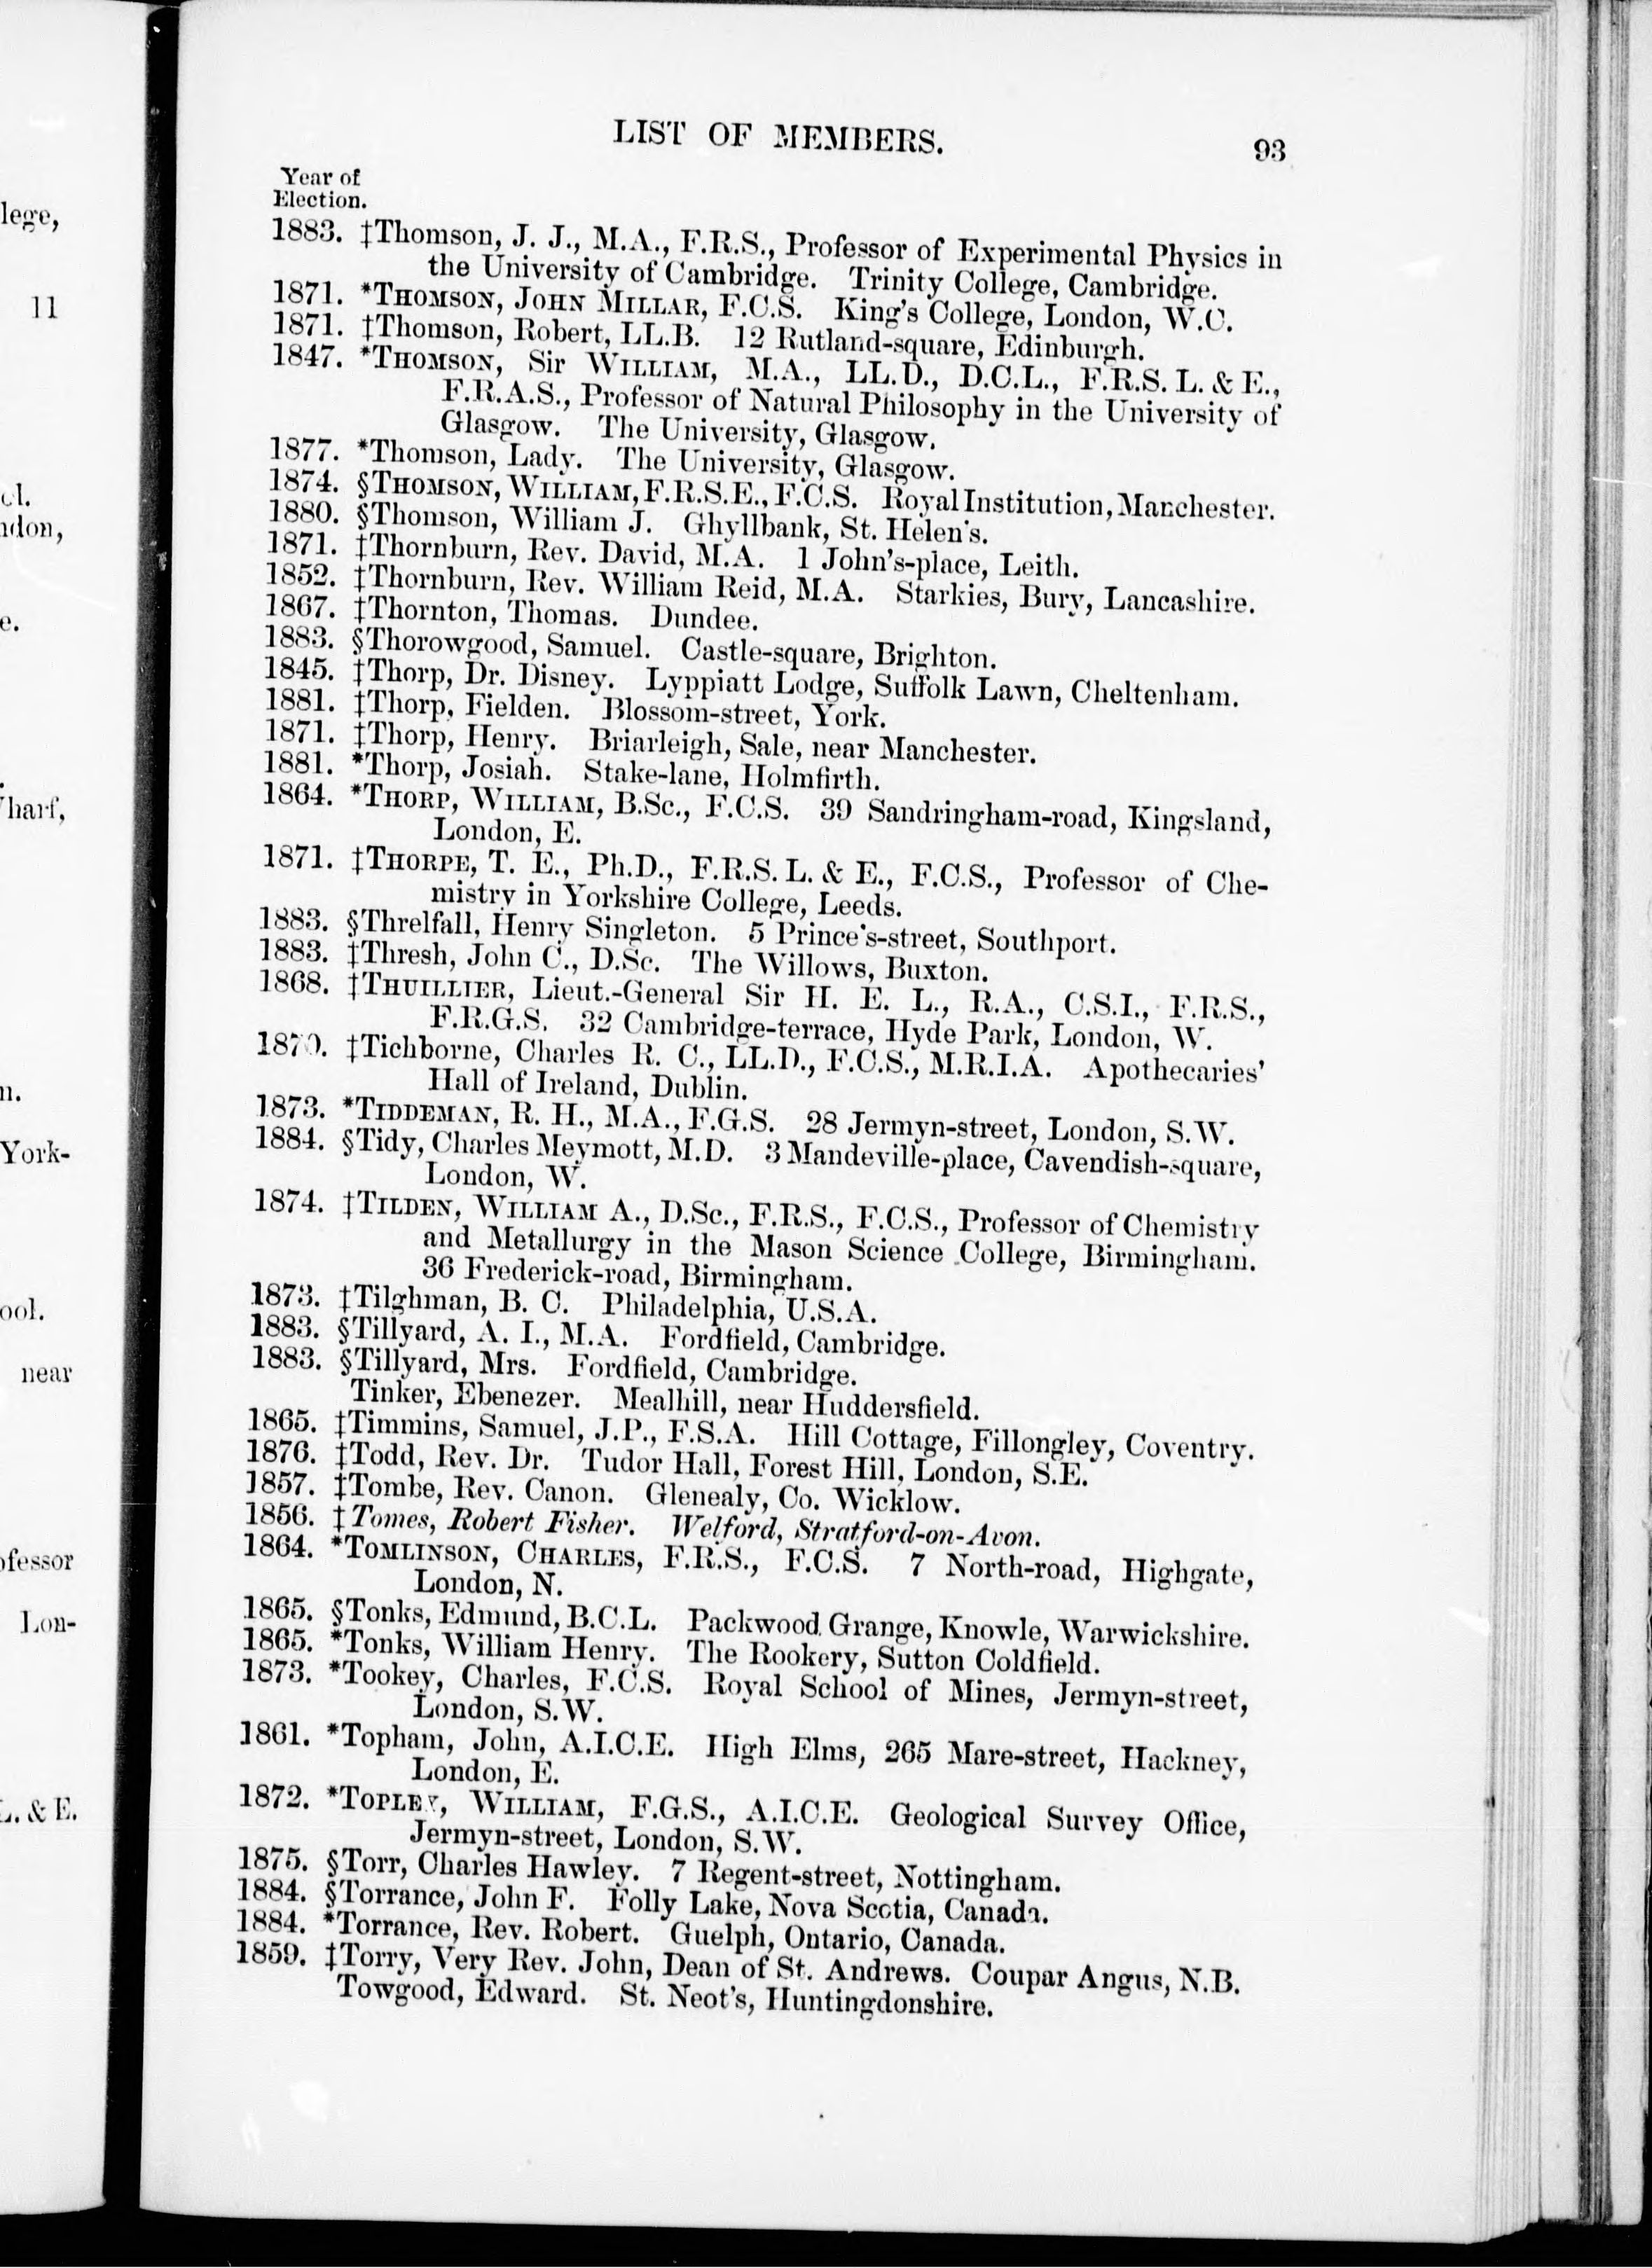 LIST OF MEMBERS. 93
Year of
Election.
1883. ‡Thomson, J. J., M.A., F.R.S., Professor of Experimental Physics in
the University of Cambridge. Trinity College, Cambridge.
1871. *THOMSON, JOHN MILLAR, F.C.S. King's College, London, W.C.
1871. ‡Thomson, Robert, LL.B. 12 Rutland-square, Edinburgh.
1847. *THOMSON, Sir WILLIAM, M.A., LL.D., D.C.L., F.R.S. L. & E.,
F.R.A.S., Professor of Natural Philosophy in the University of
Glasgow. The University, Glasgow.
1877. *Thomson, Lady. The University, Glasgow.
1874. §THOMSON, WILLIAM, F.R.S.E., F.C.S. Royal Institution, Manchester.
1880. §Thomson, William J. Ghyllbank, St. Helen's.
1871. ‡Thornburn, Rev. David, M.A. 1 John's-place, Leith.
1852. ‡Thornburn, Rev. William Reid, M.A. Starkies, Bury, Lancashire.
1867. ‡Thornton, Thomas. Dundee.
1883. §Thorowgood, Samuel. Castle-square, Brighton.
1845. ‡Thorp, Dr. Disney. Lyppiatt Lodge, Suffolk Lawn, Cheltenham.
1881. ‡Thorp, Fielden. Blossom-street, York.
1871. ‡Thorp, Henry. Briarleigh, Sale, near Manchester.
1881. *Thorp, Josiah. Stake-lane, Holmfirth.
1864. *THORP, WILLIAM, B.Sc., F.C.S. 39 Sandringham-road, Kingsland,
London, E.
1871. ‡THORPE, T. E., Ph.D., F.R.S. L. & E., F.C.S., Professor of Che-
mistry in Yorkshire College, Leeds.
1883. §Threlfall, Henry Singleton. 5 Prince's-street, Southport.
1883. ‡Thresh, John C., D.Sc. The Willows, Buxton.
1868. ‡THUILLIER, Lieut.-General Sir H. E. L., R.A., C.S.I., F.R.S.,
F.R.G.S. 32 Cambridge-terrace, Hyde Park, London, W.
1870. ‡Tichborne, Charles R. C., LL.D., F.C.S., M.R.I.A. Apothecaries'
Hall of Ireland, Dublin.
1873. *TIDDEMAN, R. H., M.A., F.G.S. 28 Jermyn-street, London, S.W.
1884. §Tidy, Charles Meymott, M.D. 3 Mandeville-place, Cavendish-square,
London, W.
1874. ‡TILDEN, WILLIAM A., D.Sc., F.R.S., F.C.S., Professor of Chemistry
and Metallurgy in the Mason Science College, Birmingham.
36 Frederick-road, Birmingham.
1873. ‡Tilghman, B. C. Philadelphia, U.S.A.
1883. §Tillyard, A. I., M.A. Fordfield, Cambridge.
1883. §Tillyard, Mrs. Fordfield, Cambridge.
Tinker, Ebenezer. Mealhill, near Huddersfield.
1865. ‡Timmins, Samuel, J.P., F.S.A. Hill Cottage, Fillongley, Coventry.
1876. ‡Todd, Rev. Dr. Tudor Hall, Forest Hill, London, S.E.
1857. ‡Tombe, Rev. Canon. Glenealy, Co. Wicklow.
1856. ‡Tomes, Robert Fisher. Welford, Stratford-on-Avon.
1864. *TOMLINSON, CHARLES, F.R.S., F.C.S. 7 North-road, Highgate,
London, N.
1865. §Tonks, Edmund, B.C.L. Packwood Grange, Knowle, Warwickshire.
1865. *Tonks, William Henry. The Rookery, Sutton Coldfield.
1873. *Tookey, Charles, F.C.S. Royal School of Mines, Jermyn-street,
London, S.W.
1861. *Topham, John, A.I.C.E. High Elms, 265 Mare-street, Hackney,
London, E.
1872. *TOPLEY, WILLIAM, F.G.S., A.I.C.E. Geological Survey Office,
Jermyn-street, London, S.W.
1875. §Torr, Charles Hawley. 7 Regent-street, Nottingham.
1884. §Torrance, John F. Folly Lake, Nova Scotia, Canada.
1884. *Torrance, Rev. Robert. Guelph, Ontario, Canada.
1859. ‡Torry, Very Rev. John, Dean of St. Andrews. Coupar Angus, N.B.
Towgood, Edward. St. Neot's, Huntingdonshire.
lege,
11
ndon,
e.
harf,
n.
York-
ool.
near
ofessor
Lon-
L. & E.